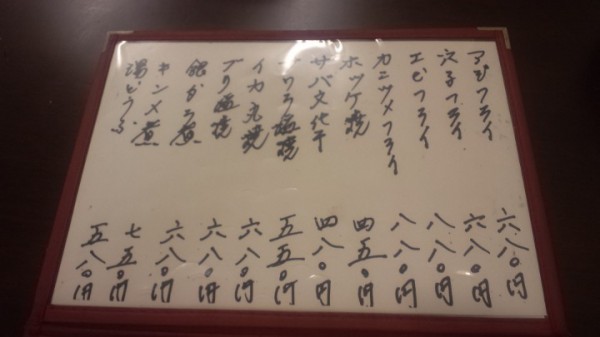 アジフライ 六八〇円
穴子フライ 六八〇円
エビフライ 八八〇円
カニツメフライ 八八〇円
ホッケ焼 四五〇円
サバ文化干 四八〇円
サワラ塩焼 五五〇円
イカ丸焼 六八〇円
ブリ塩焼 六八〇円
銀ダラ煮 六八〇円
キンメ煮 七五〇円
湯どうふ 五八〇円